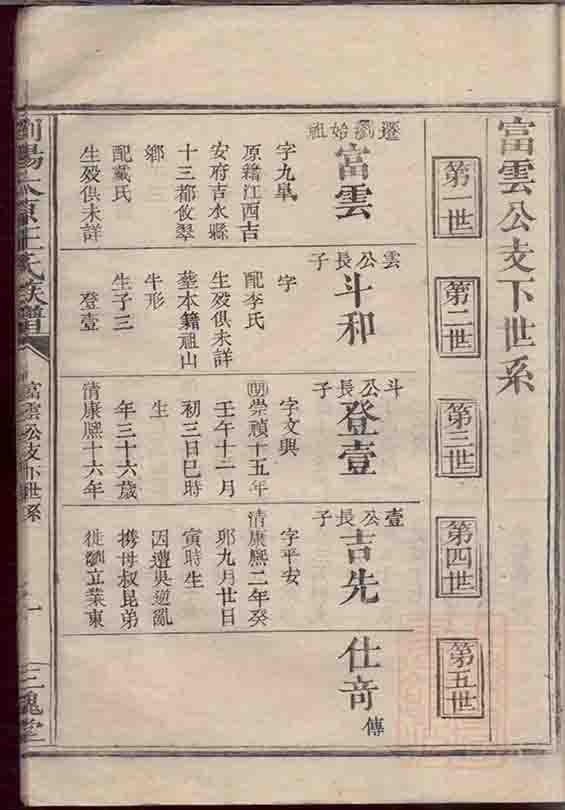 富雲公支下世系
第一世
第二世
第三世
第四世
第五世
遷瀏始祖
富雲
字九臯
原籍江西吉
安府吉水縣
十三都攸翠
鄉
配戴氏
生殁俱未詳
雲公長子
斗和
字
配李氏
生殁俱未詳
塟本籍祖山
牛形
生子三
登壹
斗公長子
登壹
字文興
明崇禎十五年
壬午十二月
初三日巳時
生
年三十六歲
清康熙十六年
壹公長子
吉先
字平安
清康熙二年癸
夘九月廿日
寅時生
因遭吳逆亂
携母叔昆弟
徙瀏立業東
仕奇
傳
瀏陽太原王氏族譜
富雲公支下世系
一
三槐堂